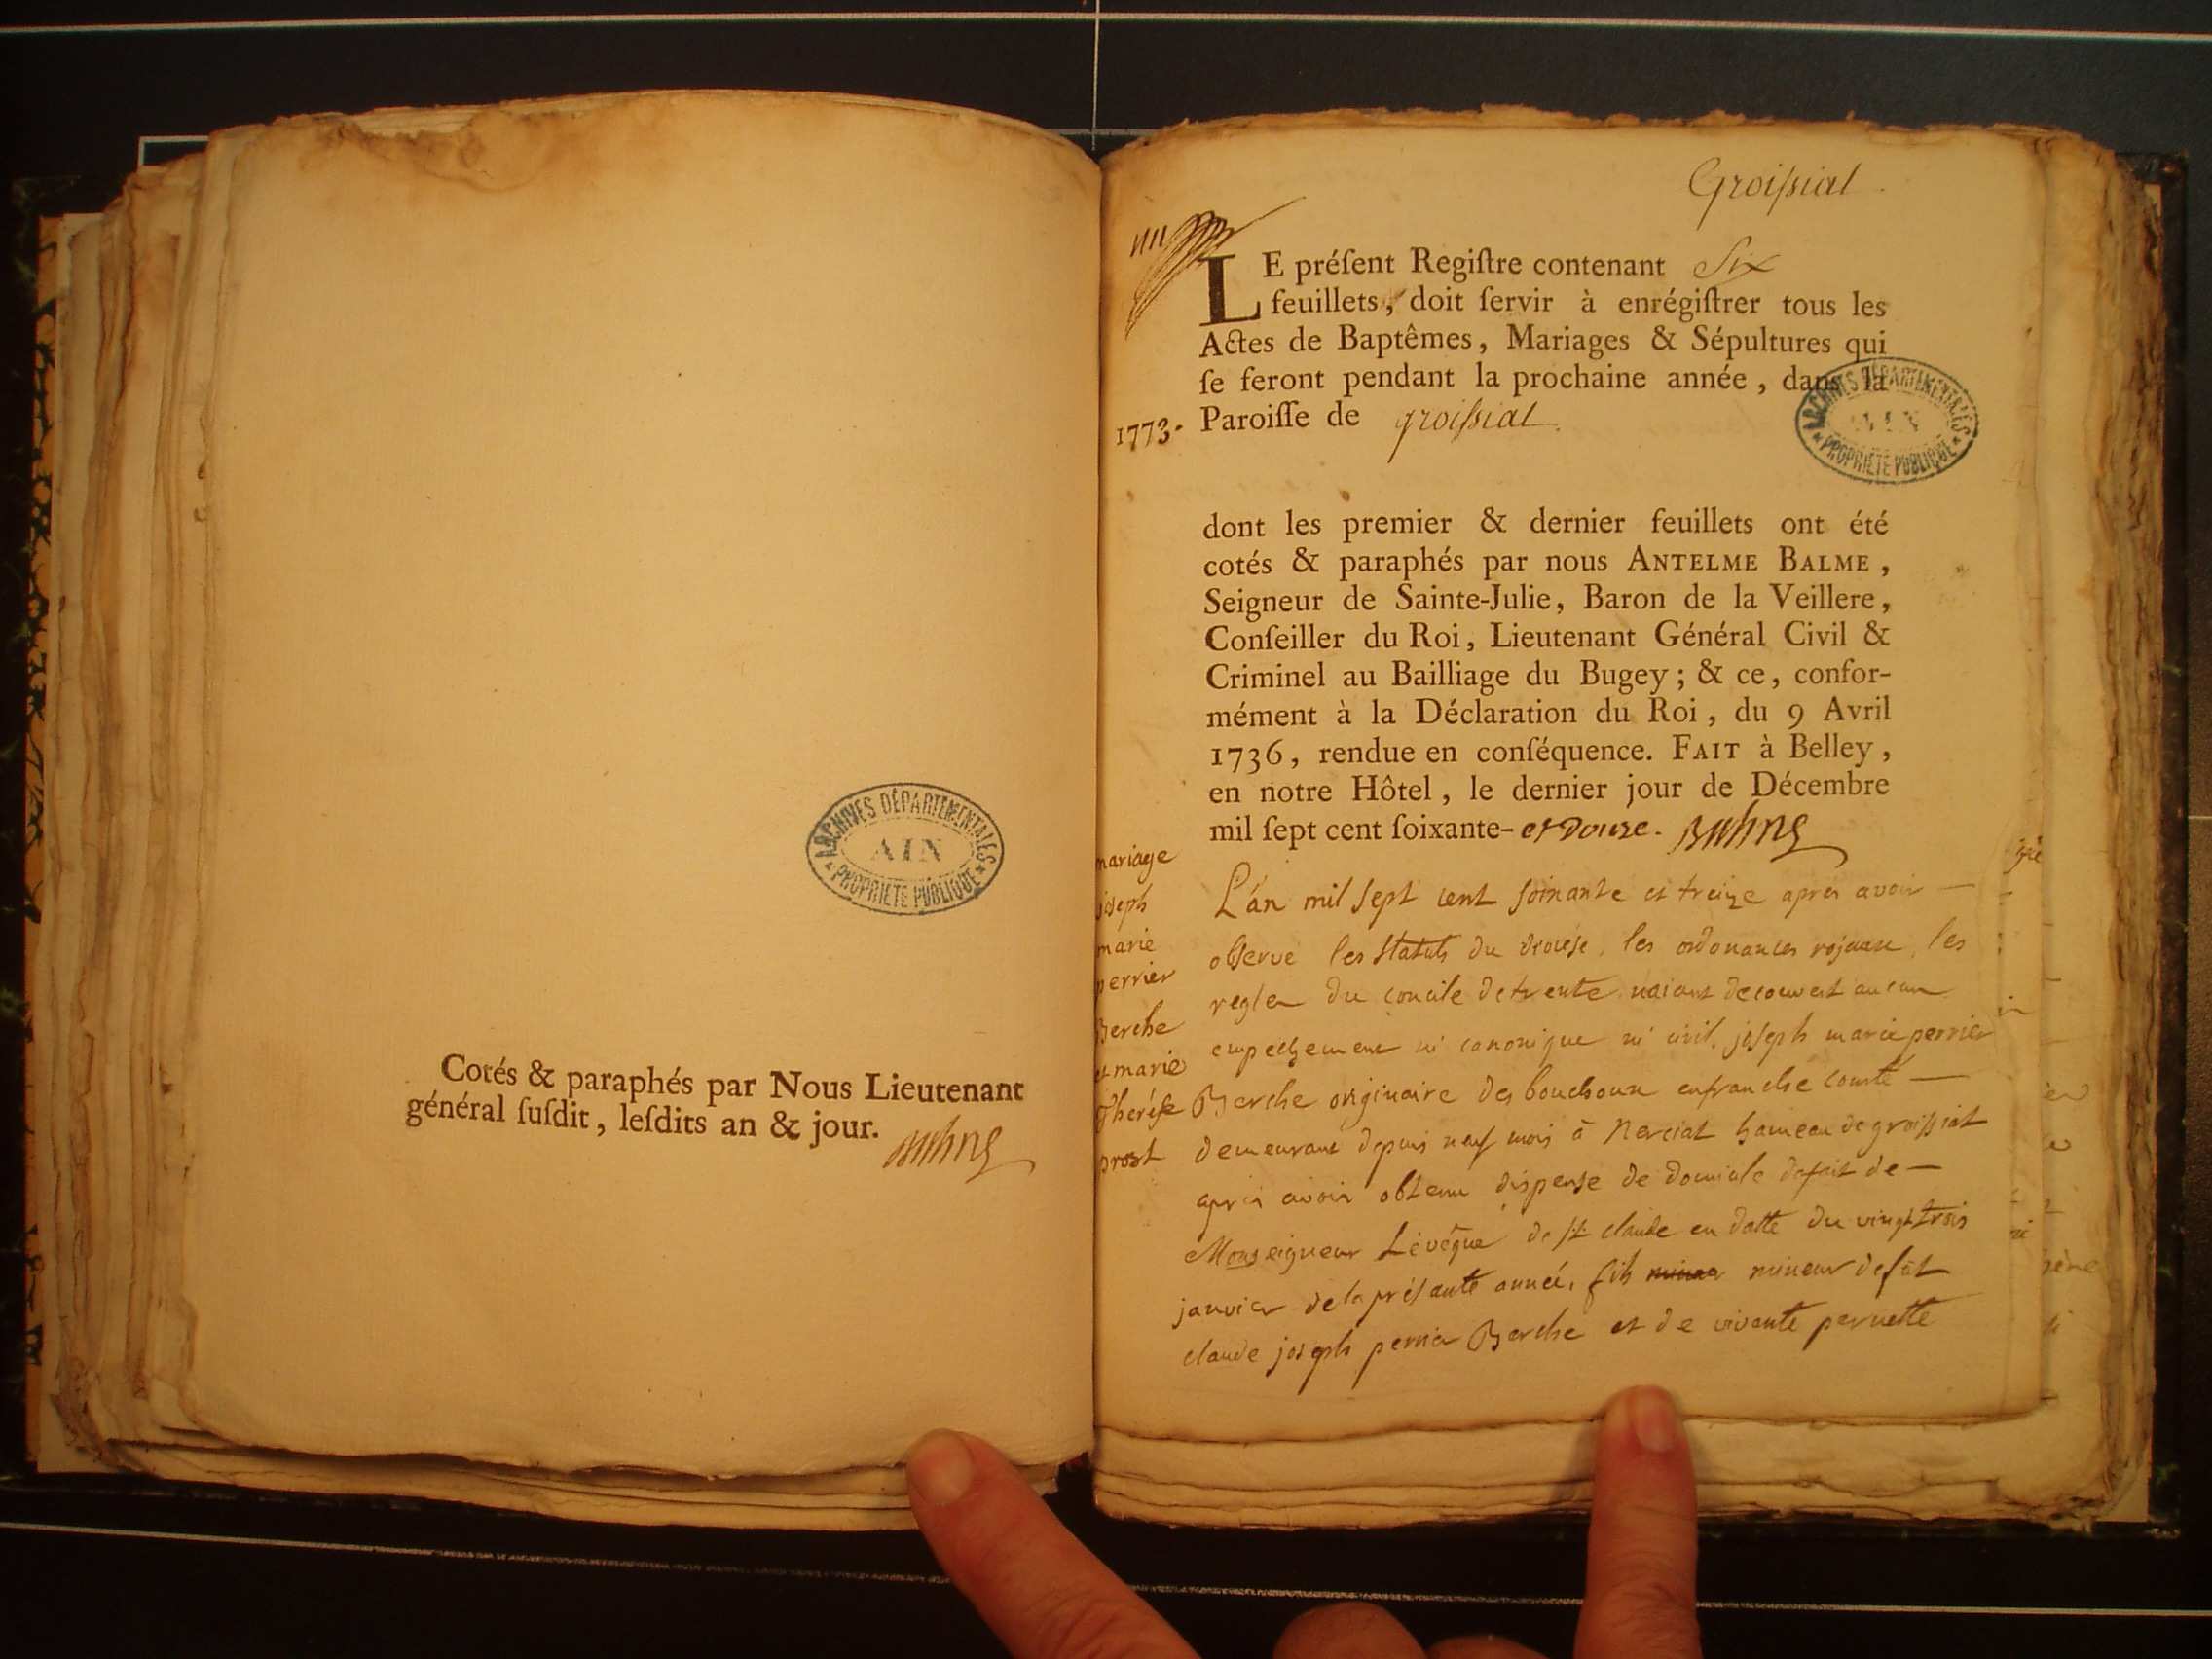 ARCHIVES DÉPARTEMENTALES
AIN
PROPRIÉTÉ PUBLIQUE
Cotés & paraphés par Nous Lieutenant
général ſuſdit, leſdits an & jour.
Groiſsiat
LE préſent Regiſtre contenant Six
feuillets, doit ſervir à enrégiſtrer tous les
Actes de Baptêmes, Mariages & Sépultures qui
ſe feront pendant la prochaine année, dans la
1773. Paroiſſe de groiſsiat
ARCHIVES DÉPARTEMENTALES
AIN
PROPRIÉTÉ PUBLIQUE
dont les premier & dernier feuillets ont été
cotés & paraphés par nous ANTELME BALME,
Seigneur de Sainte-Julie, Baron de la Veillere,
Conſeiller du Roi, Lieutenant Général Civil &
Criminel au Bailliage du Bugey; & ce, confor-
mément à la Déclaration du Roi, du 9 Avril
1736, rendue en conſéquence. FAIT à Belley,
en notre Hôtel, le dernier jour de Décembre
mil ſept cent ſoixante- et Douze.
mariage
joseph
marie
perrier
Berche
et marie
Therése
prost
L'án mil sept cent soixante et treize apres avoir
observé les statuts du diocése, les ordonances rojaux, les
regles du concile de trente naiant decouvert aucun
empechement ni canonique ni civil, joseph marie perrier
Berche originaire des bouchoux enfranche comté
demeurant depuis neuf mois á Nerciat hameau de groissiat
aprés avoir obtenu dispense de domicile de fait de
Monseigneur L'evêque de st claude en datte du vingt trois
janvier de la présante année, fils mineur mineur defût
claude joseph perrier Berche et de vivante pernette